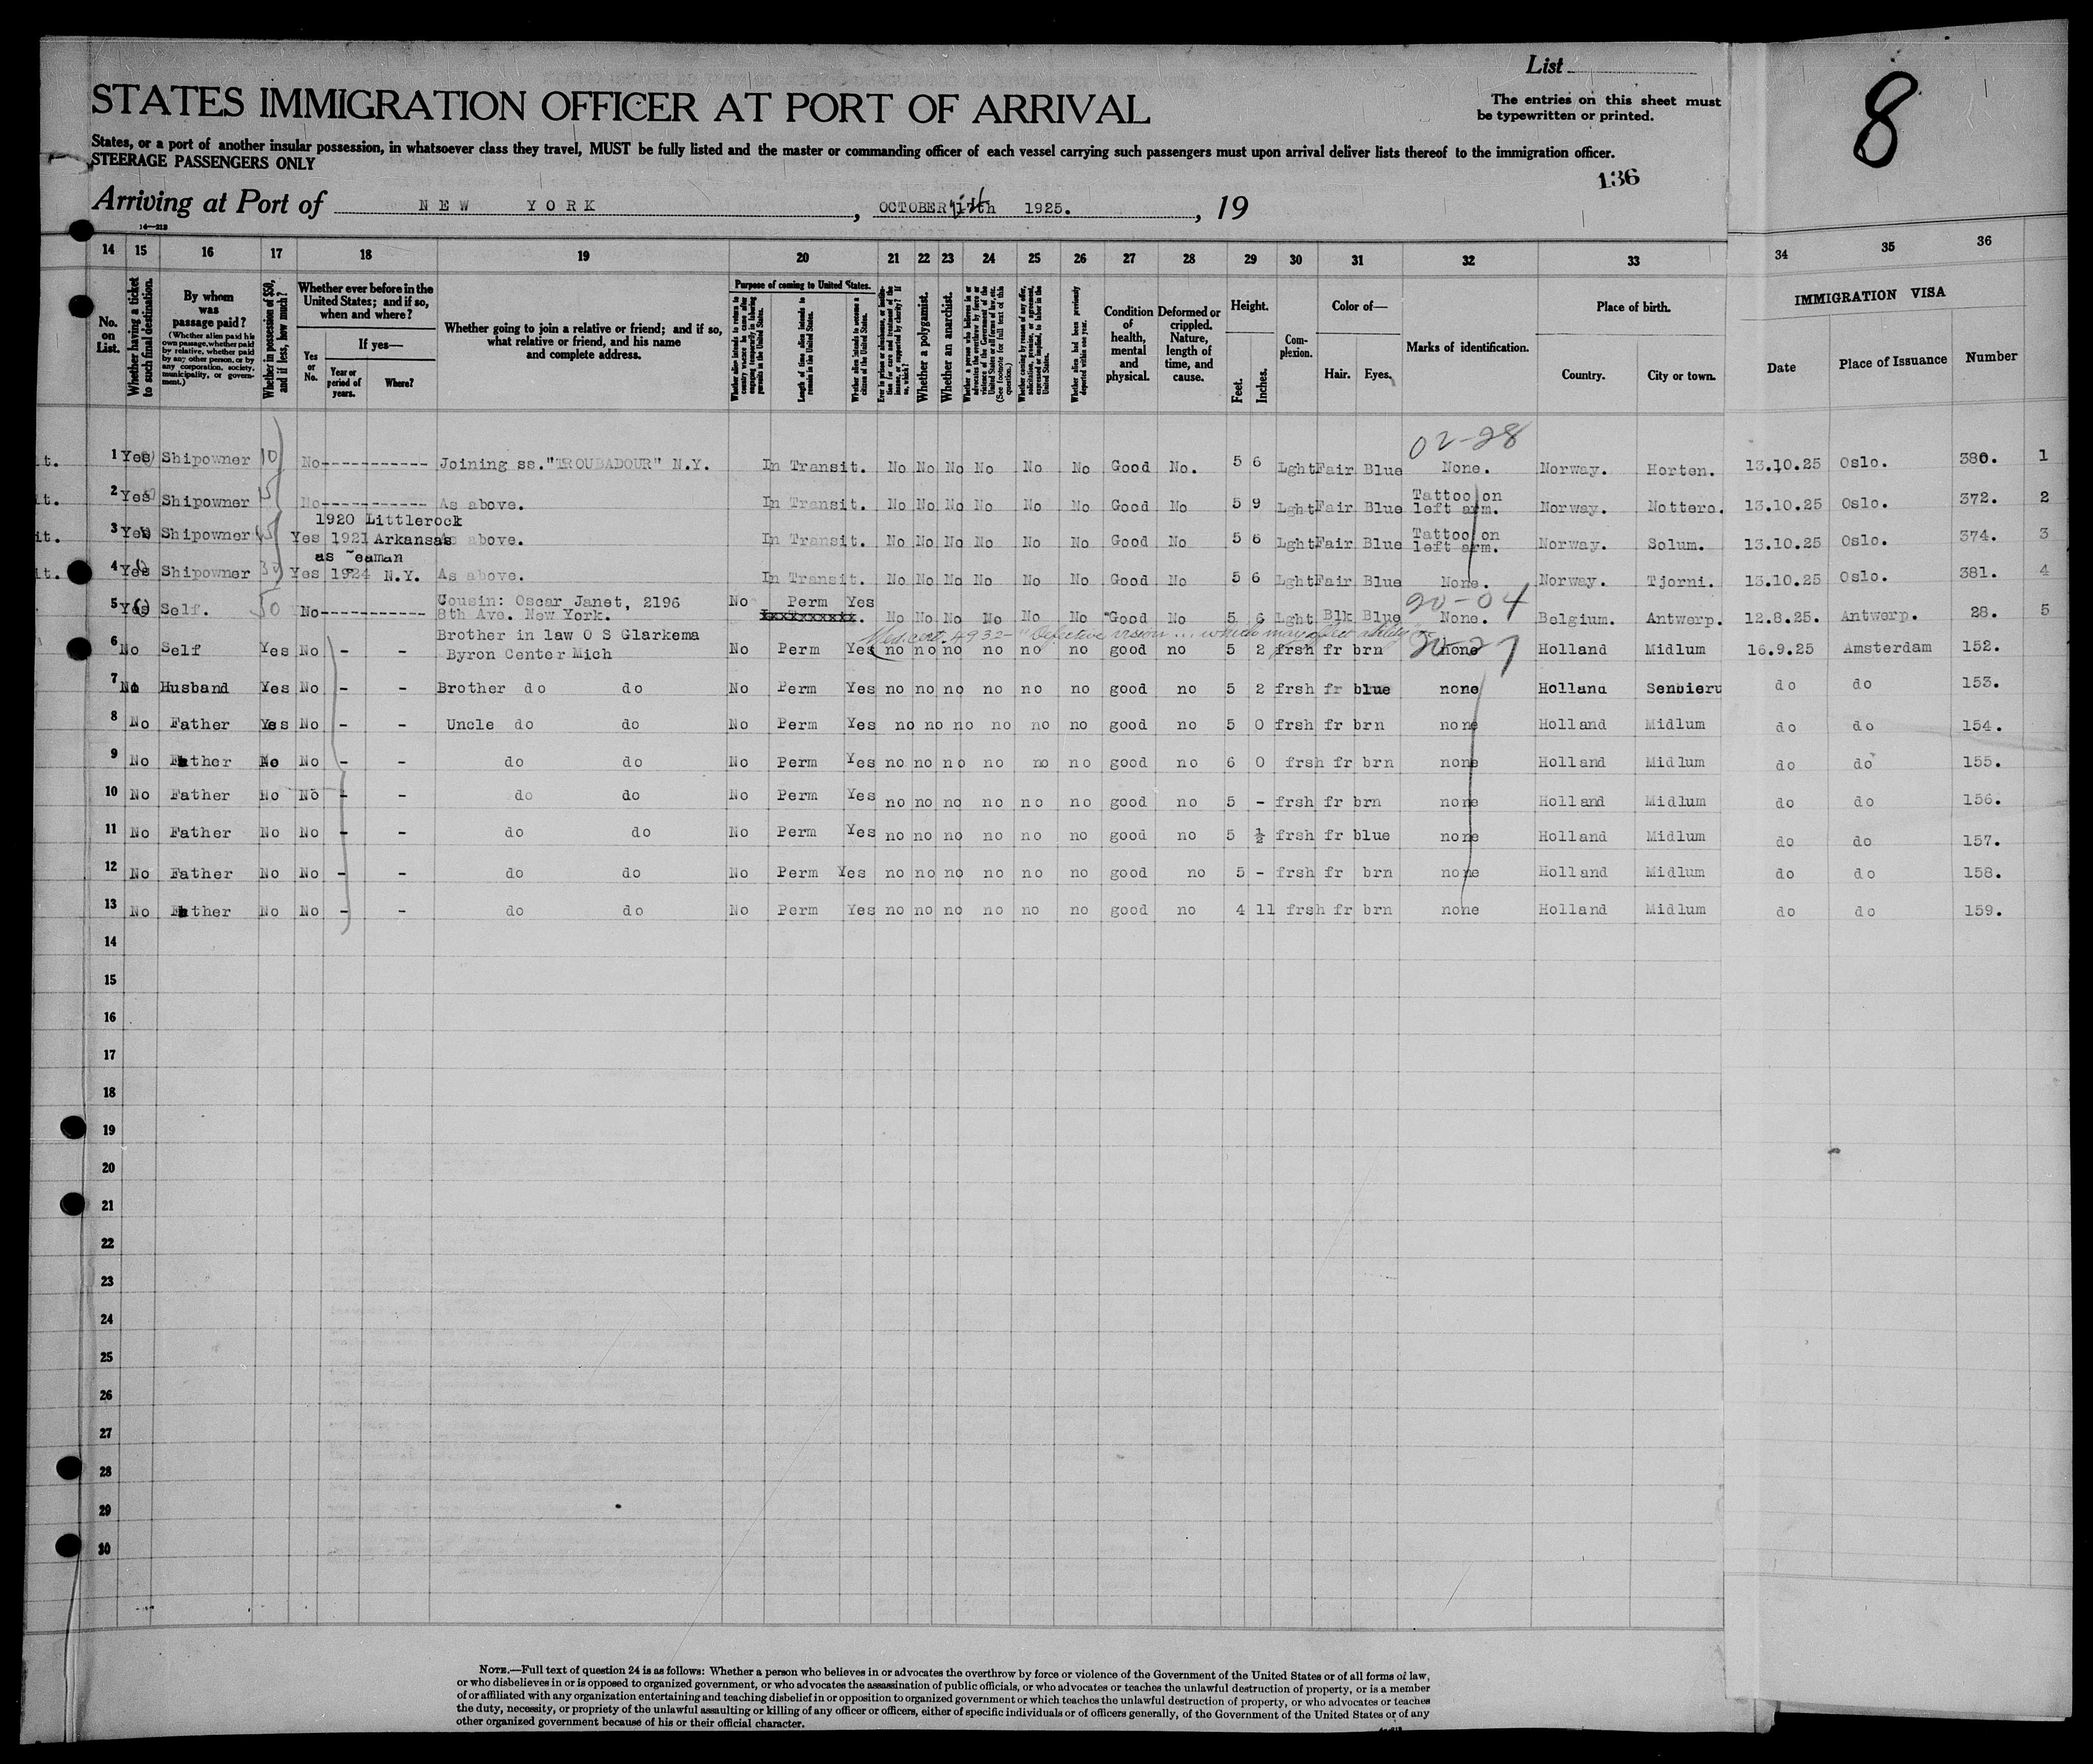 List
8
STATES IMMIGRATION OFFICER AT PORT OF ARRIVAL
The entries on this sheet must
be typewritten or printed.
States, or a port of another insular possession, in whatsoever class they travel, MUST be fully listed and the master or commanding officer of each vessel carrying such passengers must upon arrival deliver lists thereof to the immigration officer.
STEERAGE PASSENGERS ONLY
136
Arriving at Port of NEW YORK, OCTOBER 1925. , 19
14—213
14 15 16 17 18 19 20 21 22 23 24 25 26 27 28 29 30 31 32 33 34 35 36
No. on List.
Whether having a ticket to such final destination.
By whom was passage paid?
(Whether alien paid his own passage, whether paid by relative, whether paid by any other person, or by any corporation, society, municipality, or government.)
Whether in possession of $50, and if less, how much?
Whether ever before in the United States; and if so, when and where?
Yes or No.
If yes—
Year or period of years.
Where?
Whether going to join a relative or friend; and if so, what relative or friend, and his name and complete address.
Purpose of coming to United States.
Whether alien intends to return to country whence he came after engaging temporarily in laboring pursuits in the United States.
Length of time alien intends to remain in the United States.
Whether alien intends to become a citizen of the United States.
Whether a polygamist.
Whether an anarchist.
Whether alien had been previously deported within one year.
Condition of health, mental and physical.
Deformed or crippled. Nature, length of time, and cause.
Height.
Feet. Inches.
Complexion.
Color of—
Hair. Eyes.
Marks of identification.
Place of birth.
Country. City or town.
IMMIGRATION VISA
Date Place of Issuance Number
02-28
it. 1 Yes Shipowner 10 No----------- Joining ss."TROUBADOUR" N.Y. In Transit. No No No No No No Good No. 5 6 Lght Fair Blue None. Norway. Horten. 13.10.25 Oslo. 380. 1
it. 2 Yes Shipowner 15 No----------- As above. In Transit. No No No No No No Good No 5 9 Lght Fair Blue Tattoo on left arm. Norway. Nottero. 13.10.25 Oslo. 372. 2
1920 Littlerock
it. 3 Yes Shipowner Yes 1921 Arkansas As above. In Transit. No No No No No No Good No 5 6 Lght Fair Blue Tattoo on left arm. Norway. Solum. 13.10.25 Oslo. 374. 3
as eaman
it. 4 Yes Shipowner Yes 1924 N.Y. As above. In Transit. No No No No No No Good No 5 6 Lght Fair Blue None. Norway. Tjorni. 13.10.25 Oslo. 381. 4
20-04
5 Yes Self. 50 No----------- Cousin: Oscar Janet, 2196 8th Ave. New York. No Perm Yes No No No No No No Good No 5 6 Lght Blk Blue None. Belgium. Antwerp. 12.8.25. Antwerp. 28. 5
Med. cert. 4932- "Defective vision ... which may affect ability"
6 No Self Yes No - - Brother in law O S Glarkema Byron Center Mich No Perm Yes no no no no no no good no 5 2 frsh fr brn none Holland Midlum 16.9.25 Amsterdam 152.
20-27
7 No Husband Yes No - - Brother do do No Perm Yes no no no no no no good no 5 2 frsh fr blue none Holland Senbieru do do 153.
8 No Father Yes No - - Uncle do do No Perm Yes no no no no no no good no 5 0 frsh fr brn none Holland Midlum do do 154.
9 No Father No No - - do do No Perm Yes no no no no no no good no 6 0 frsh fr brn none Holland Midlum do do 155.
10 No Father No No - - do do No Perm Yes no no no no no no good no 5 - frsh fr brn none Holland Midlum do do 156.
11 No Father No No - - do do No Perm Yes no no no no no no good no 5 ½ frsh fr blue none Holland Midlum do do 157.
12 No Father No No - - do do No Perm Yes no no no no no no good no 5 - frsh fr brn none Holland Midlum do do 158.
13 No Father No No - - do do No Perm Yes no no no no no no good no 4 11 frsh fr brn none Holland Midlum do do 159.
14
15
16
17
18
19
20
21
22
23
24
25
26
27
28
29
30
NOTE.—Full text of question 24 is as follows: Whether a person who believes in or advocates the overthrow by force or violence of the Government of the United States or of all forms of law,
or who disbelieves in or is opposed to organized government, or who advocates the assassination of public officials, or who advocates or teaches the unlawful destruction of property, or is a member
of or affiliated with any organization entertaining and teaching disbelief in or opposition to organized government or which teaches the unlawful destruction of property, or who advocates or teaches
the duty, necessity, or propriety of the unlawful assaulting or killing of any officer or officers, either of specific individuals or of officers generally, of the Government of the United States or of any
other organized government because of his or their official character.